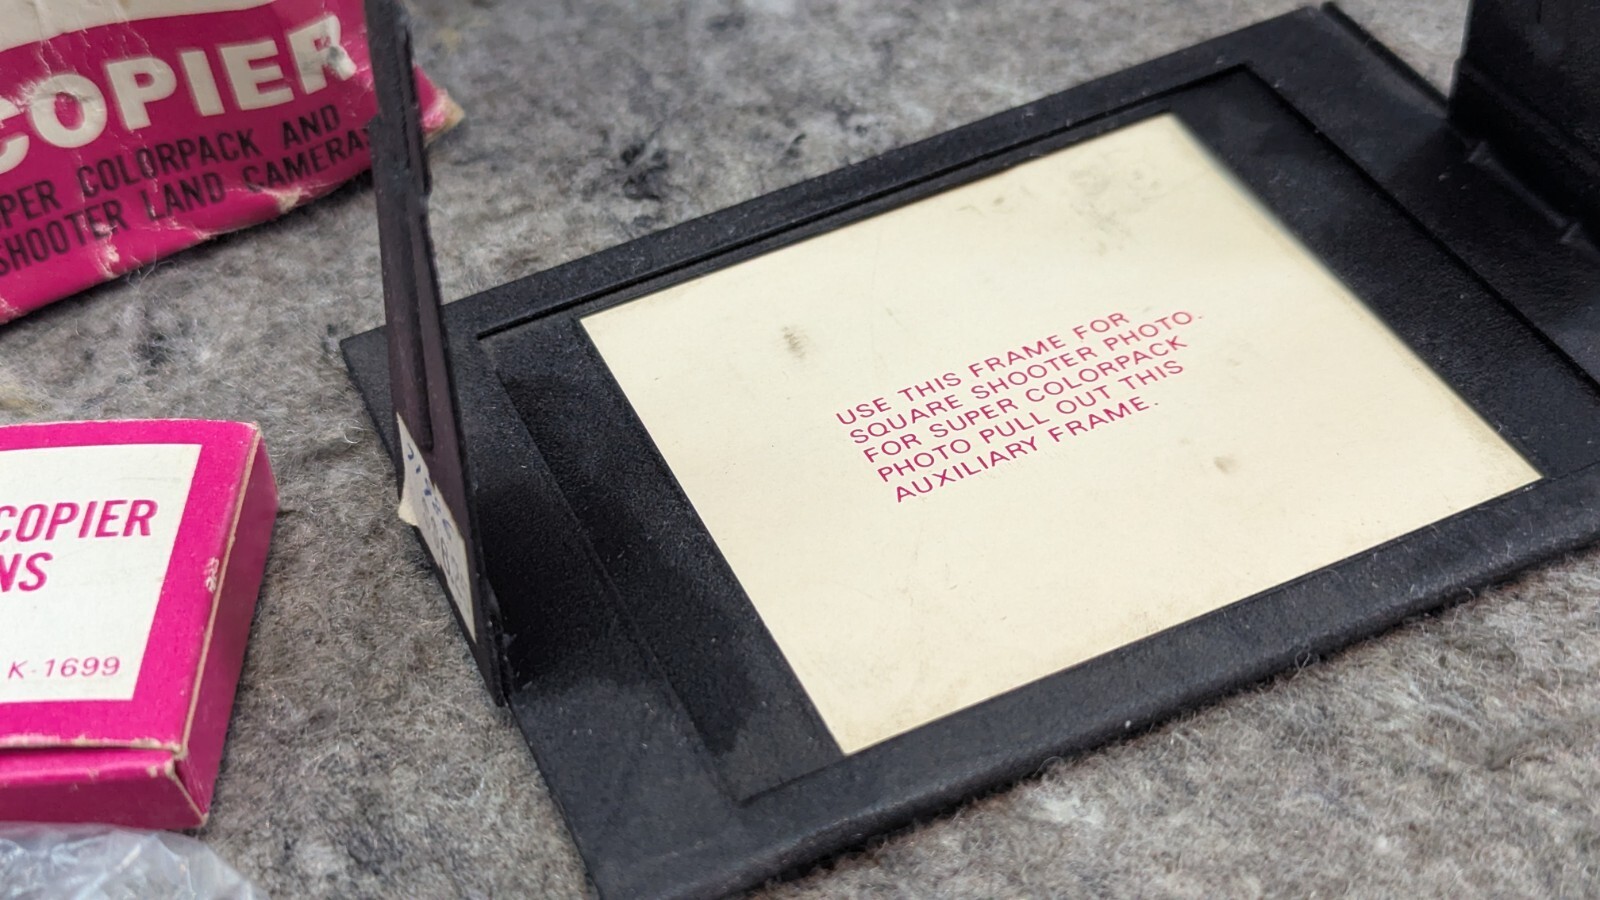 COPIER
PER COLORPACK AND
SHOOTER LAND CAMERA
COPIER
NS
K-1699
USE THIS FRAME FOR
SQUARE SHOOTER PHOTO.
FOR SUPER COLORPACK
PHOTO PULL OUT THIS
AUXILIARY FRAME.